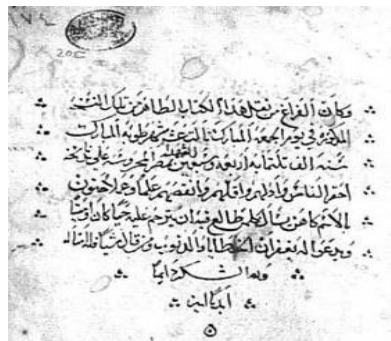 وكان الفراغ من نقل هذا الكتاب الطاهر من تلك النسخة
المذكورة في يوم الجمعة المبارك التاسع من شهر طوبه المبارك
سنة الف ثلثمائة اربعة وتسعين للشهدا بمصر المحروسة على يد
احقر الناس واذلهم واقلهم وانقصهم علما وعملا
بالاسم كاهن يسال كل من طالع فيه ان يترحم عليه حيا كان او ميتا
ويدعو له بغفران الخطايا والذنوب ومن قال شيا فله امثاله
ولله الشكر دايما
ابديا امين